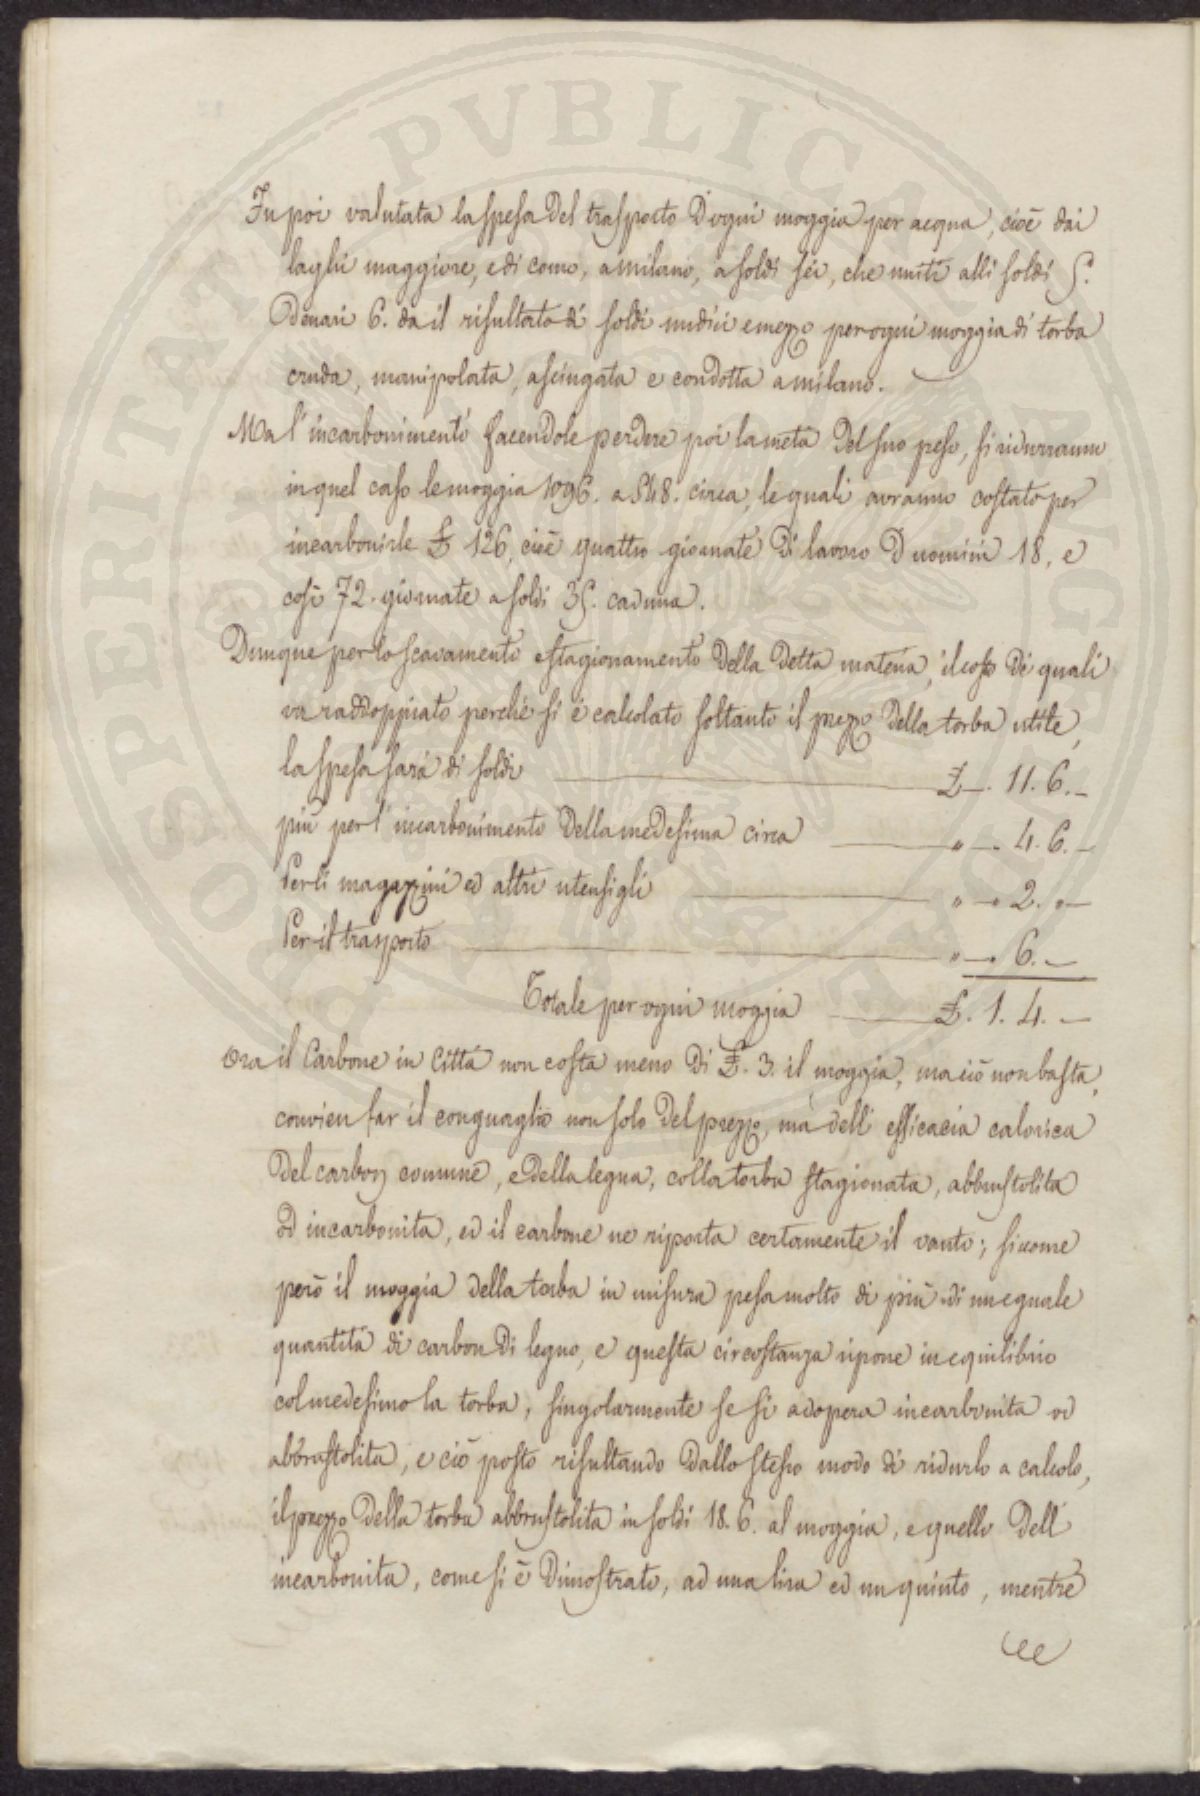 Fu poi valutata la spesa del trasporto d'ogni moggia per acqua, cioè dai
laghi maggiore, e di como, a milano, a soldi sei, che uniti alli soldi 5.
Denari 6. da il risultato di soldi undici e mezzo per ogni moggia di torba
cruda, manipolata, asciugata e condotta a milano.
Ma l'incarbonimento facendole perdere poi la metà del suo peso, si ridurranno
in quel caso le moggia 1096. a 548. circa, le quali avranno costato per
incarbonirle £ 126, cioè quattro giornate di lavoro D'uomini 18, e
così 72. giornate a soldi 35. caduna.
Dunque per lo scavamento e stagionamento della detta materia, il costo di quali
va raddoppiato perché si è calcolato soltanto il prezzo della torba utile,
la spesa sarà di soldi £ —. 11. 6. —
più per l'incarbonimento della medesima circa " —. 4. 6. —
Per li magazzini ed altri utensigli " —. 2. " —
Per il trasporto " —. 6. —
Totale per ogni moggia £. 1. 4. —
Ora il Carbone in Città non costa meno di £. 3. il moggia, ma ciò non basta,
convien far il conguaglio non solo del prezzo, ma dell'efficacia calorica
del carbon comune, e della legna, colla torba stagionata, abbrustolita
od incarbonita, ed il carbone ne riporta certamente il vanto; siccome
però il moggia della torba in misura pesa molto di più di un eguale
quantità di carbon di legno, e questa circostanza ripone in equilibrio
col medesimo la torba, singolarmente se si adopera incarbonita od
abbrustolita, e ciò posto risultando dallo stesso modo di ridurlo a calcolo,
il prezzo della torba abbrustolita in soldi 18. 6. al moggia, e quello dell'
incarbonita, come si è dimostrato, ad una lira ed un quinto, mentre